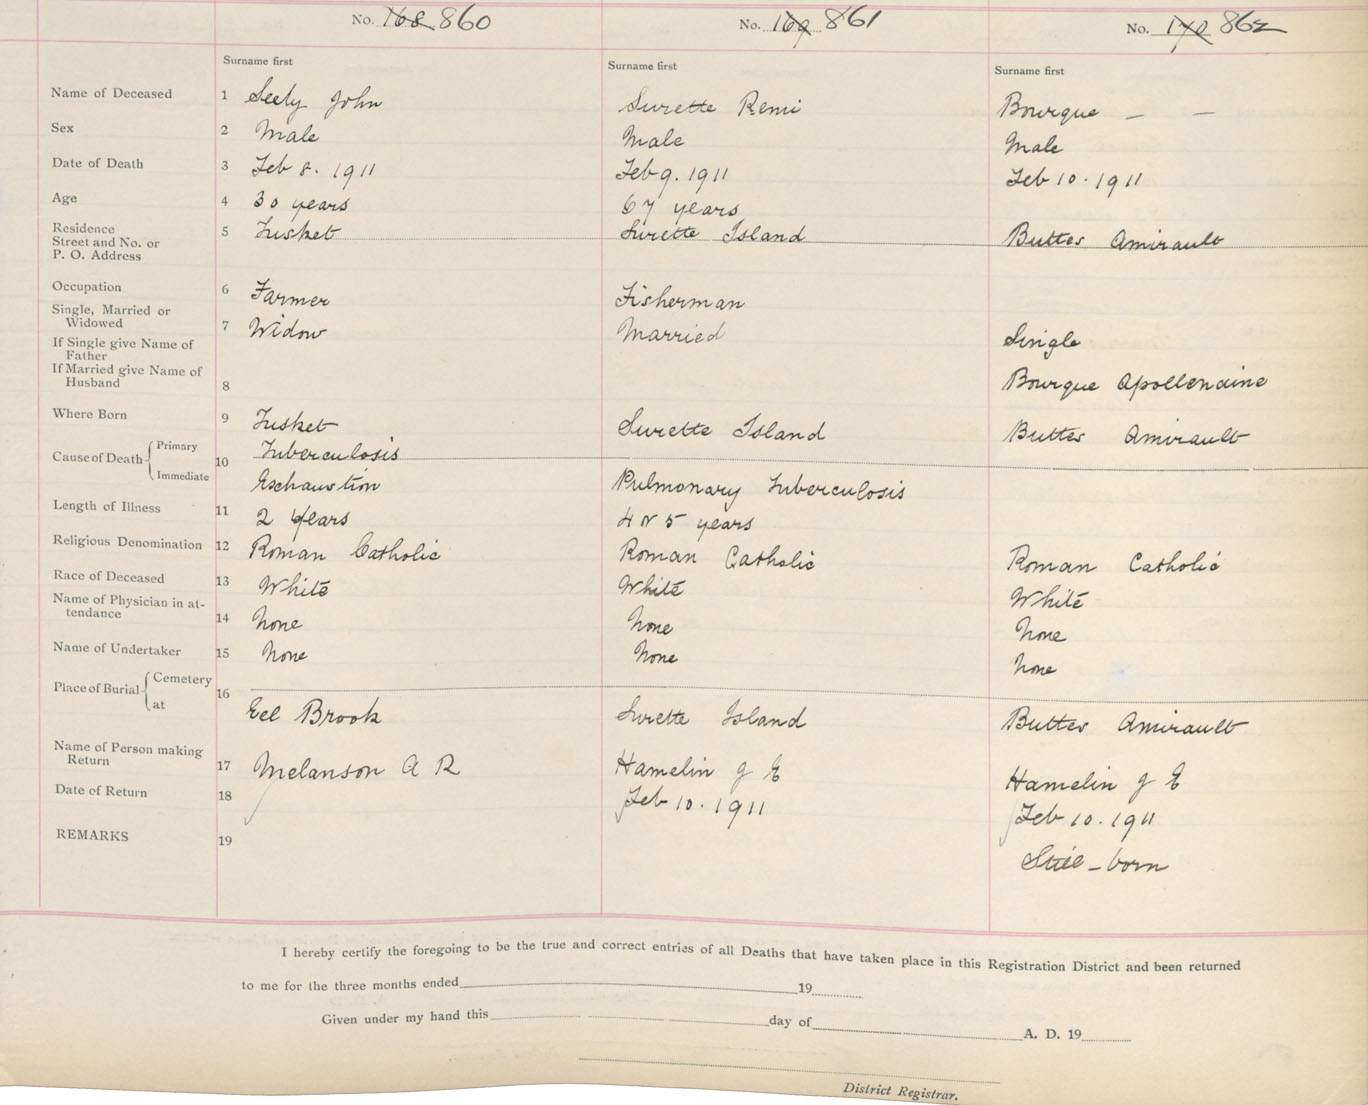 No. 168 860 No. 169 861 No. 170 862
Surname first Surname first Surname first
Name of Deceased 1 Seely John Surette Remi Bourque — —
Sex 2 Male Male Male
Date of Death 3 Feb 8. 1911 Feb 9. 1911 Feb 10. 1911
Age 4 30 years 67 years
Residence
Street and No. or 5 Tusket Surette Island Buttes Amirault
P. O. Address
Occupation 6 Farmer Fisherman
Single, Married or
Widowed 7 Widow Married Single
If Single give Name of
Father
If Married give Name of
Husband 8 Bourque Apollenaine
Where Born 9 Tusket Surette Island Buttes Amirault
Cause of Death { Primary 10 Tuberculosis
Immediate Exchaustion Pulmonary Tuberculosis
Length of Illness 11 2 years 4 or 5 years
Religious Denomination 12 Roman Catholic Roman Catholic Roman Catholic
Race of Deceased 13 White White White
Name of Physician in at-
tendance 14 None None None
Name of Undertaker 15 None None None
Place of Burial { Cemetery 16
at Eel Brook Surette Island Buttes Amirault
Name of Person making
Return 17 Melanson A R Hamelin J E Hamelin J E
Date of Return 18 Feb 10. 1911 Feb 10. 1911
REMARKS 19 Still-born
I hereby certify the foregoing to be the true and correct entries of all Deaths that have taken place in this Registration District and been returned
to me for the three months ended 19
Given under my hand this day of A. D. 19
District Registrar.